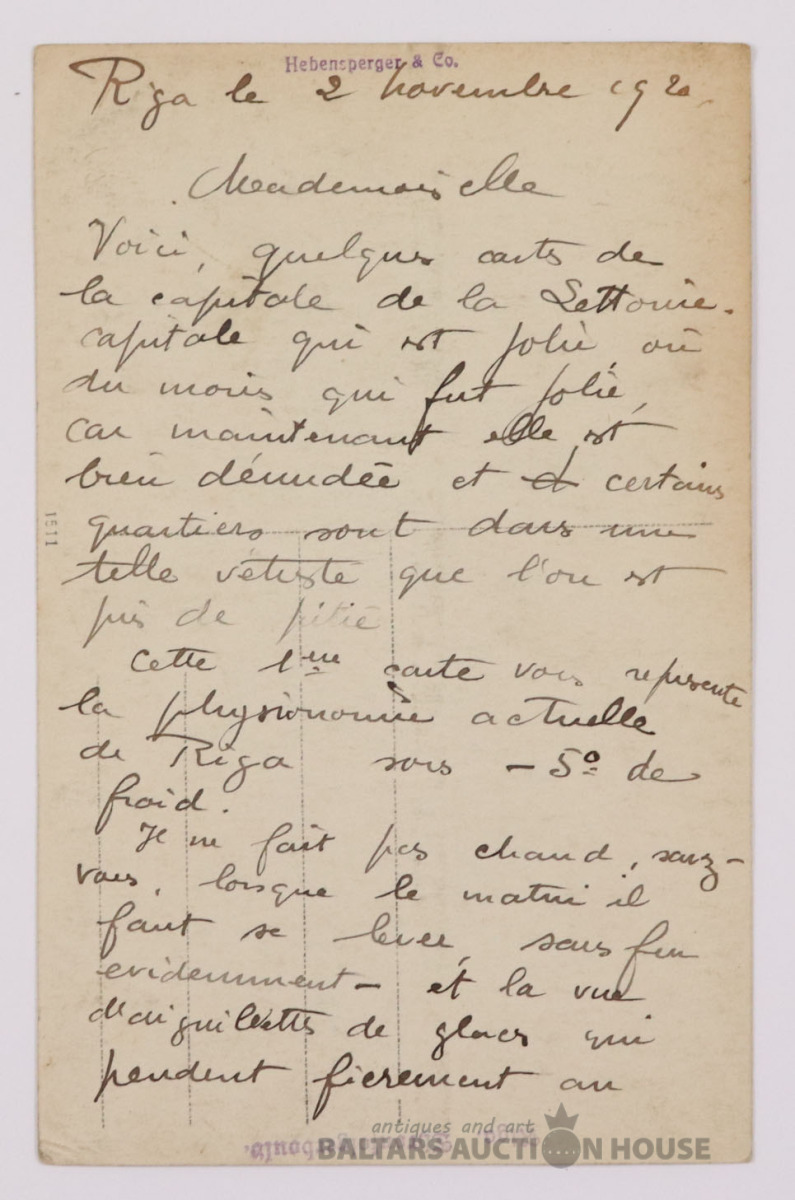 Hebensperger & Co.
Riga le 2 novembre 1920.
Mademoiselle
Voici, quelques cartes de
la capitale de la Lettonie.
capitale qui est jolie, ou
du moins qui fut jolie,
car maintenant elle est
bien dénudée et certains
quartiers sont dans une
telle vétusté que l'on est
pris de pitié
Cette 1ère carte vous représente
la physionomie actuelle
de Riga sous - 5º de
froid.
Il ne fait pas chaud, savez-
vous, lorsque le matin il
faut se lever, sans feu
evidemment - et la vue
d'aiguillettes de glaces qui
pendent fierement au
1511
antiques and art
BALTARS AUCTION HOUSE